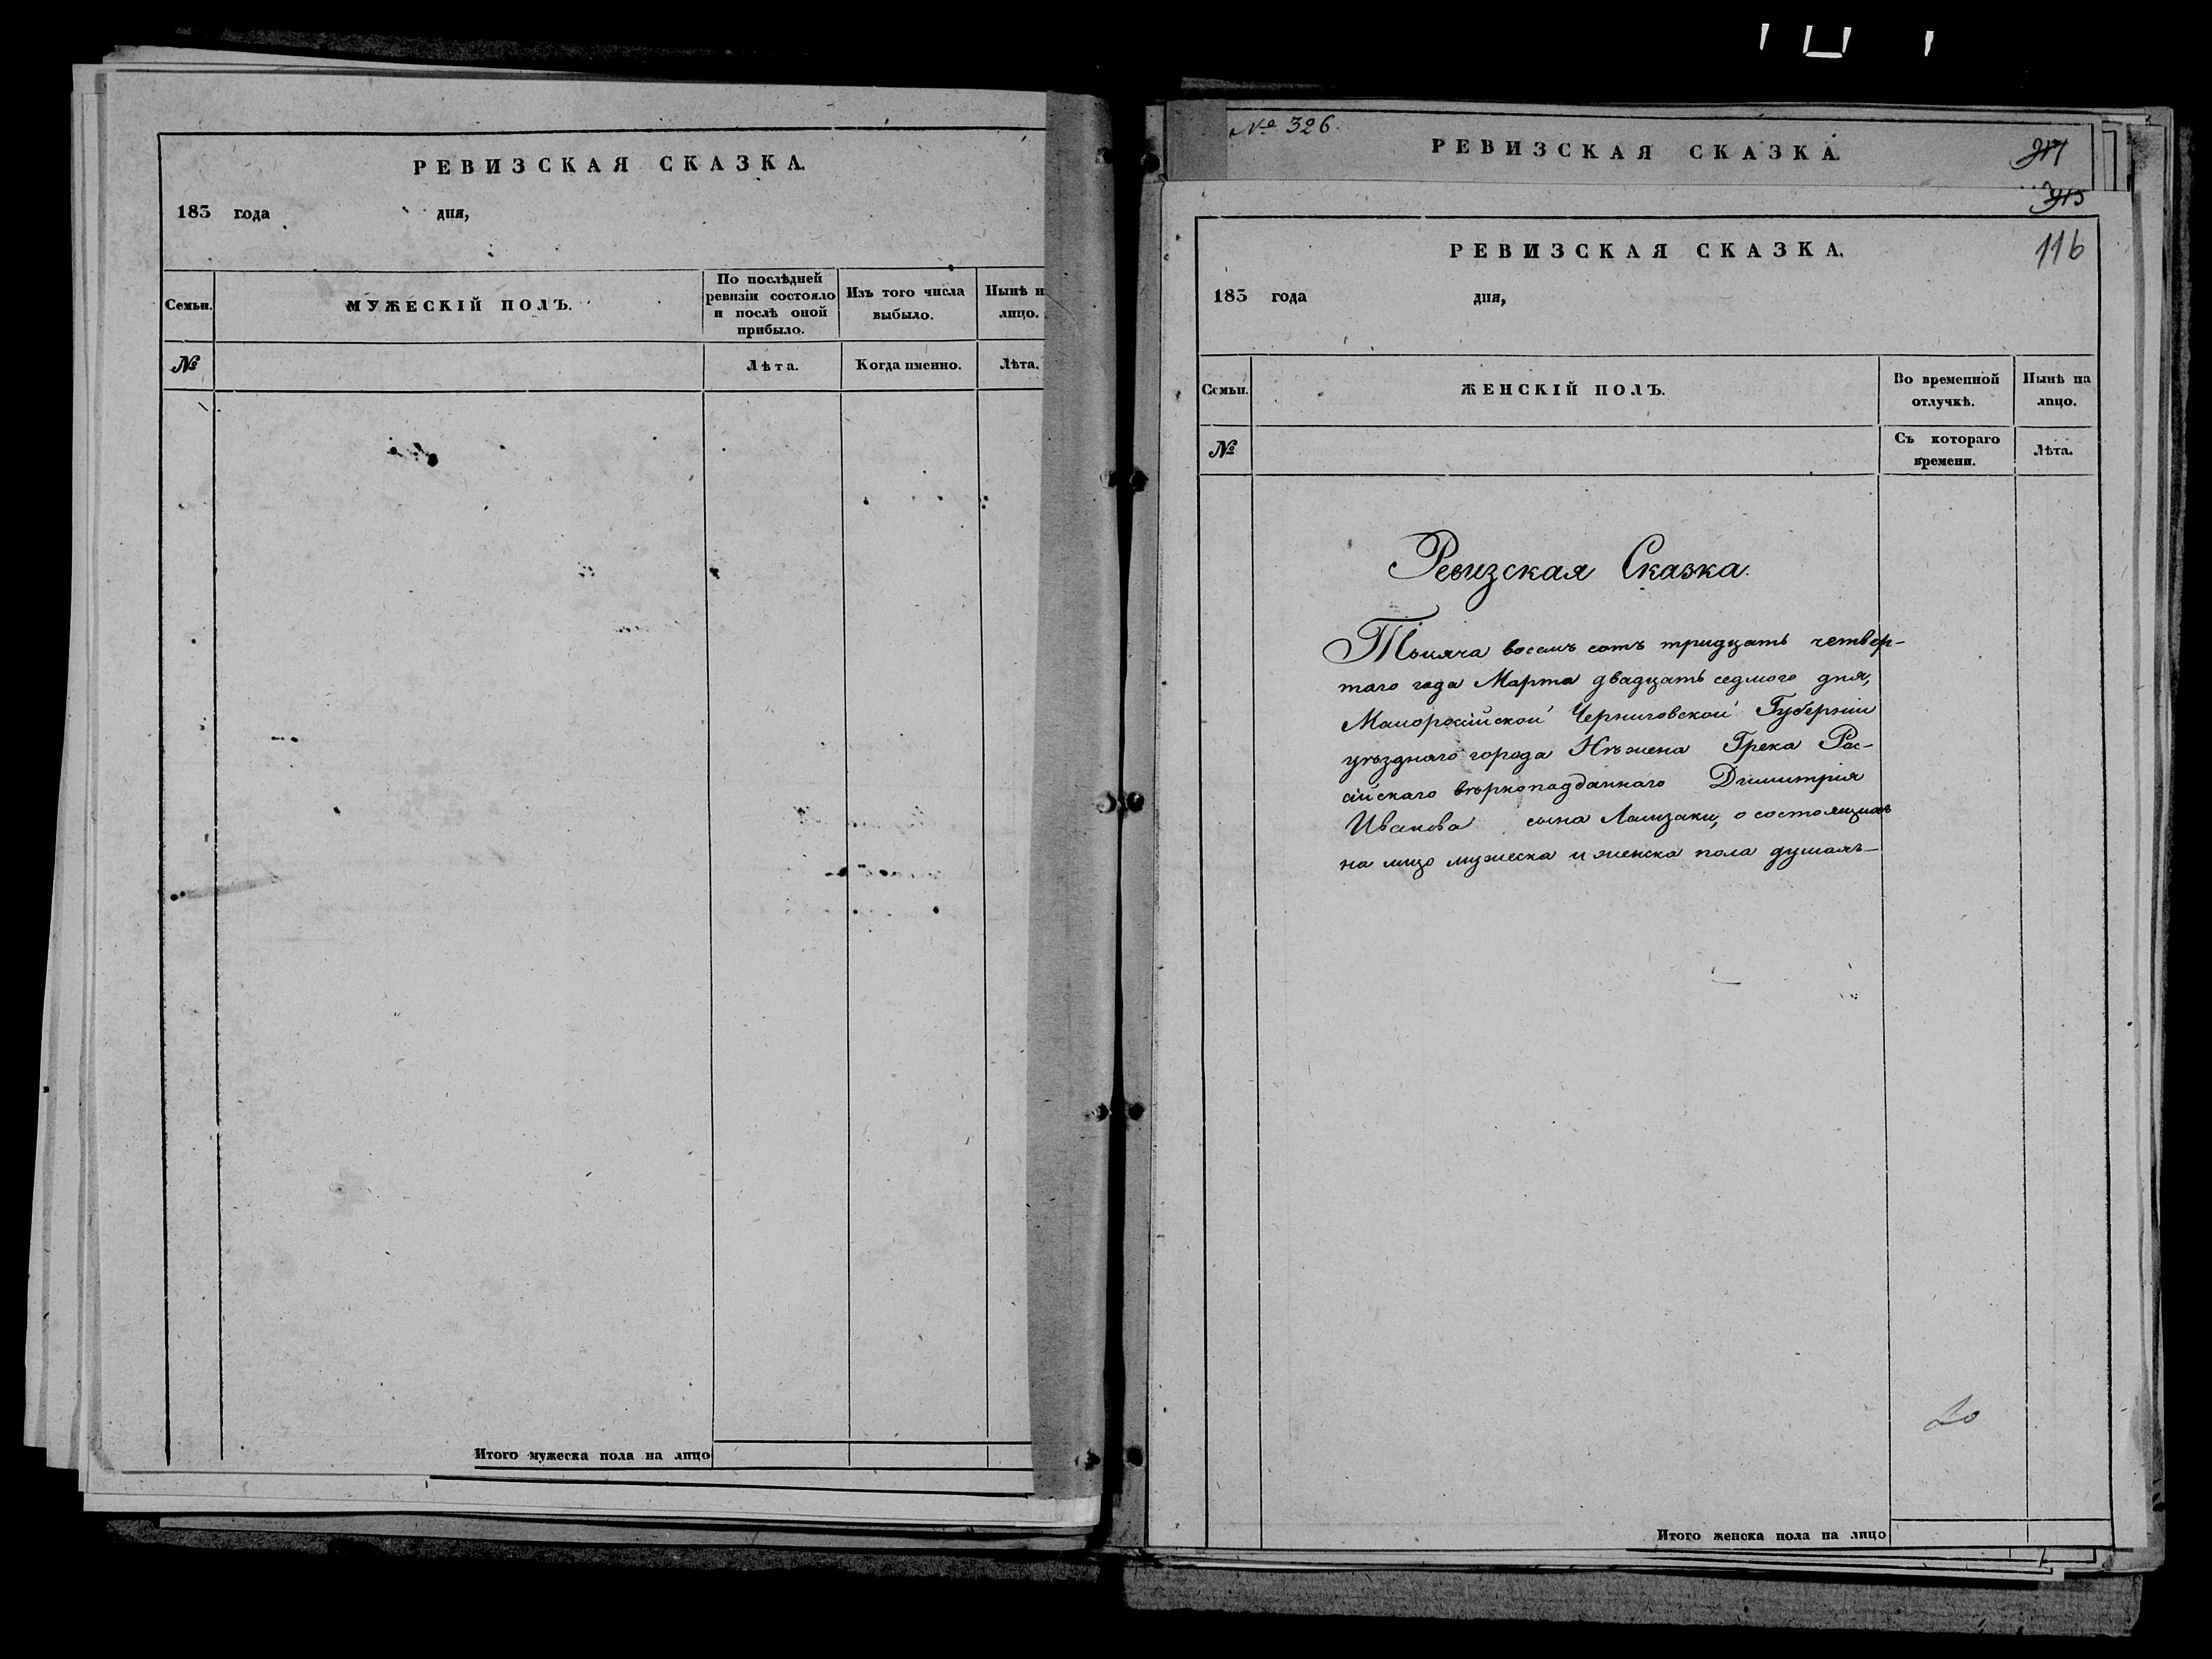 РЕВИЗСКАЯ СКАЗКА.
183 года дня,
Семьи.
МУЖЕСКІЙ ПОЛЪ.
По послѣдней
ревизіи состояло
и послѣ оной
прибыло.
Изъ того числа
выбыло.
Нынѣ н
лицо.
№
Лѣта.
Когда именно.
Лѣта.
Итого мужеска пола на лицо
№ 326.
РЕВИЗСКАЯ СКАЗКА.
РЕВИЗСКАЯ СКАЗКА.
116
183 года дня,
Семьи.
ЖЕНСКІЙ ПОЛЪ.
Во временной
отлучкѣ.
Нынѣ на
лицо.
№
Съ котораго
времени.
Лѣта.
Ревизская Сказка.
Тысяча восемъ сотъ тридцать четвер-
таго года Марта двадцать седмого дня,
Малоросійской Черниговской Губерніи
уѣзднаго города Нѣжена Грека Рас-
сійскаго вѣрноподданнаго Димитрія
Иванова сына, о состоящихъ
на лицо мужеска и женска пола душахъ—
Итого женска пола на лицо